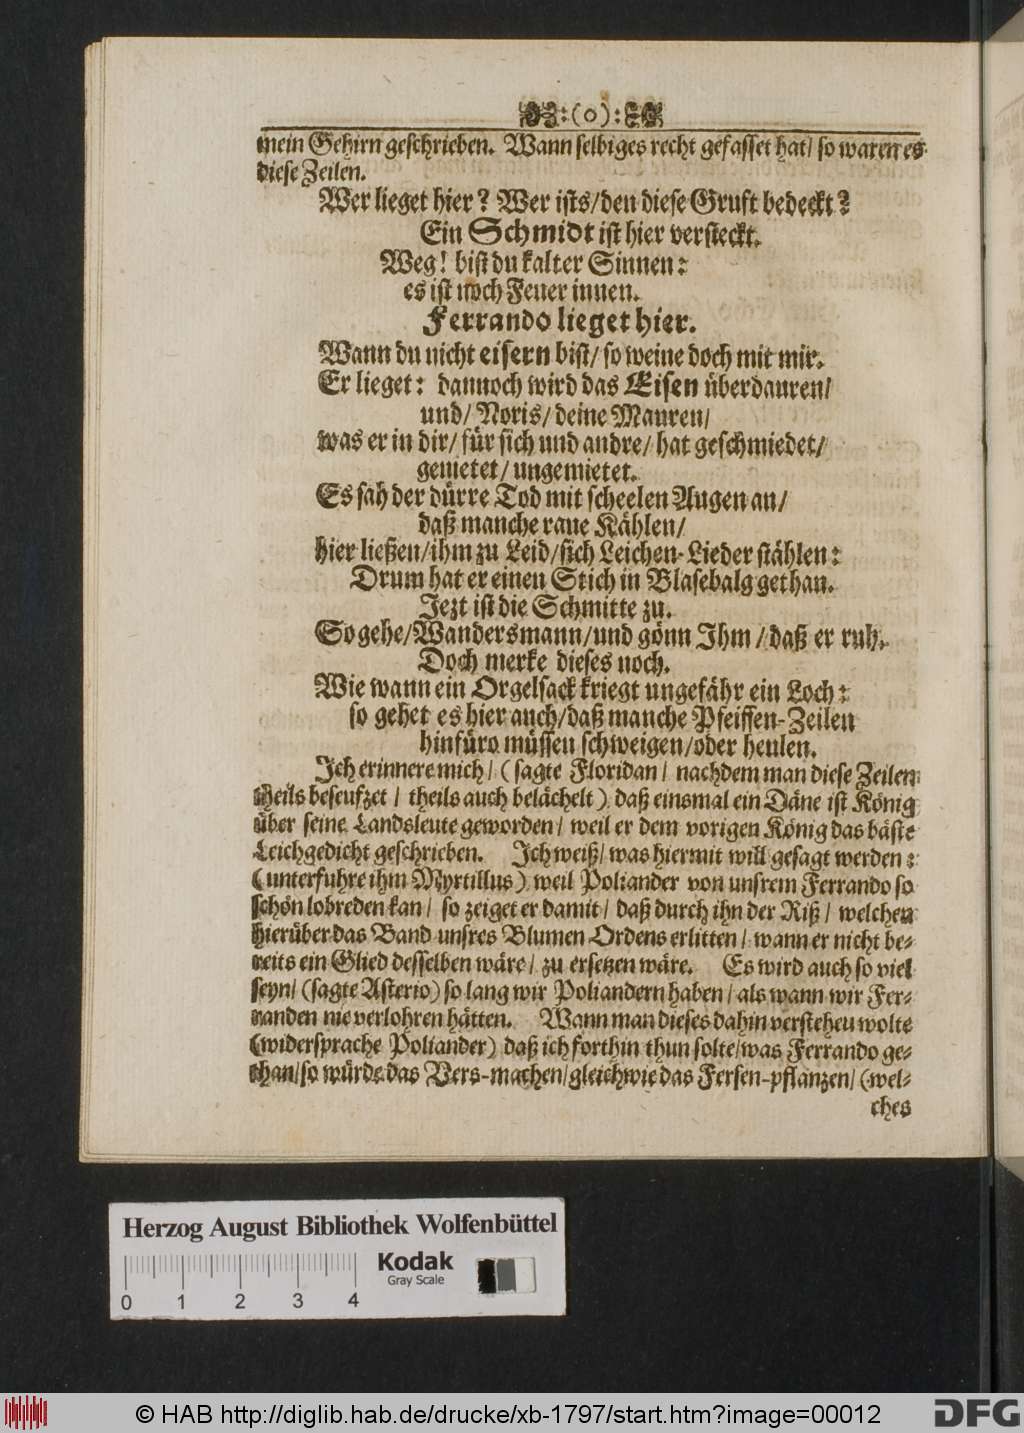 :(o):
mein Gehirn geschrieben. Wann selbiges recht gefasset hat/ so waren es
diese Zeilen.
Wer lieget hier? Wer ists/den diese Gruft bedeckt?
Ein Schmidt ist hier versteckt.
Weg! bist du kalter Sinnen:
es ist noch Feuer innen.
Ferrando lieget hier.
Wann du nicht eisern bist/ so weine doch mit mir.
Er lieget: dannoch wird das Eisen überdauren/
und/ Noris/ deine Mauren/
was er in dir/ für sich und andre/ hat geschmiedet/
genietet/ ungemietet.
Es sah der dürre Tod mit scheelen Augen an/
daß manche raue Kählen/
hier ließen/ihm zu Leid/sich Leichen-Lieder stählen:
Drum hat er einen Stich in Blasebalg gethan.
Jezt ist die Schmitte zu.
So gehe/Wandersmann/und gönn Ihm/ daß er ruh.
Doch merke dieses noch.
Wie wann ein Orgelsack kriegt ungefähr ein Loch:
so gehet es hier auch/daß manche Pfeiffen-Zeilen
hinfüro müssen schweigen/oder heulen.
Ich erinnere mich/ (sagte Floridan/ nachdem man diese Zeilen
theils beseufzet/ theils auch belächelt) daß einsmal ein Däne ist König
über seine Landsleute geworden/ weil er dem vorigen König das bäste
Leichgedicht geschrieben. Ich weiß/ was hiermit will gesagt werden:
(unterfuhre ihm Myrtillus) weil Poliander von unsrem Ferrando so
schön lobreden kan/ so zeiget er damit/ daß durch ihn der Riß/ welchen
hierüber das Band unsres Blumen Ordens erlitten/ wann er nicht be-
reits ein Glied desselben wäre/ zu ersetzen wäre. Es wird auch so viel
seyn/ (sagte Asterio) so lang wir Poliandern haben/ als wann wir Fer-
randen nie verlohren hätten. Wann man dieses dahin versteheu wolte
(widersprache Poliander) daß ich forthin thun solte/was Ferrando ge-
than/so würde das Vers-machen/gleichwie das Fersen-pflanzen/ (wel-
ches
Herzog August Bibliothek Wolfenbüttel
Kodak
Gray Scale
0 1 2 3 4
© HAB http://diglib.hab.de/drucke/xb-1797/start.htm?image=00012
DFG